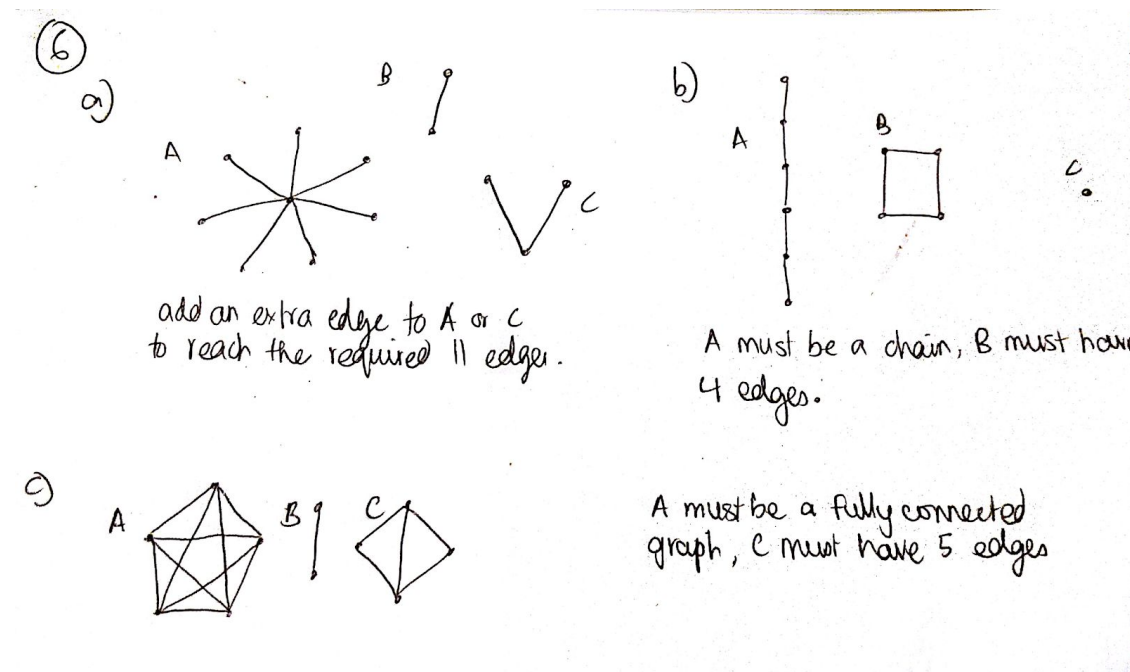 6
a)
A
B
C
add an extra edge to A or C
to reach the required 11 edges.
b)
A
B
C
A must be a chain, B must hav
4 edges.
c)
A
B
C
A must be a fully connected
graph, C must have 5 edges